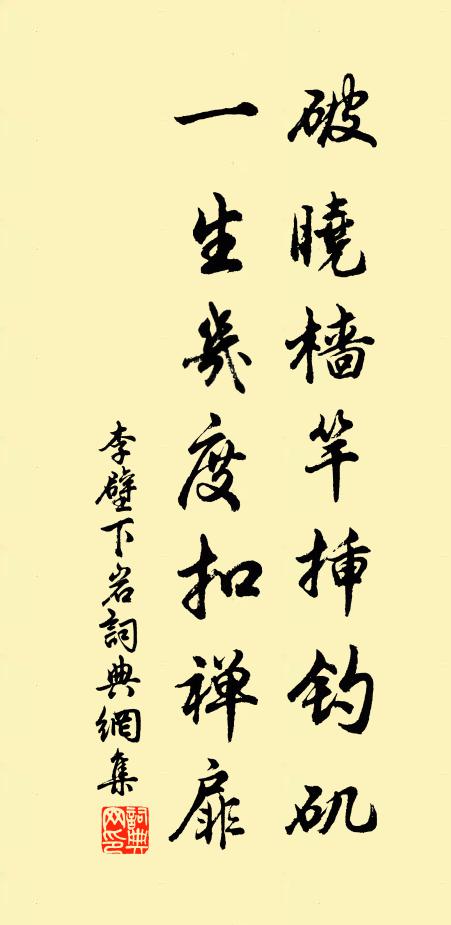 破曉檣竿插釣矶
一生幾度扣禅扉
李壁下岩詞典網集
詞典网印